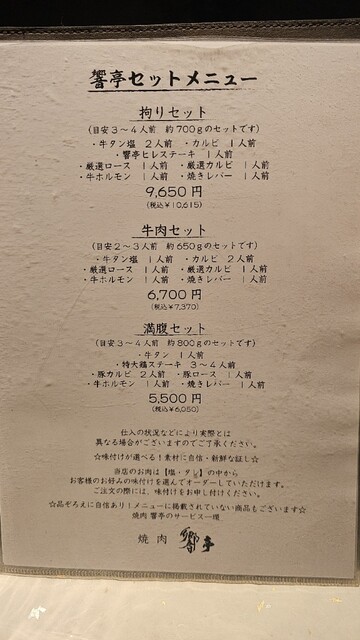 響亭セットメニュー
拘りセット
(目安3～4人前 約700gのセットです)
・牛タン塩 2人前 ・カルビ 1人前
・響亭ヒレステーキ 1人前
・厳選ロース 1人前 ・厳選カルビ 1人前
・牛ホルモン 1人前 ・焼きレバー 1人前
9,650円
(税込¥10,615)
牛肉セット
(目安2～3人前 約650gのセットです)
・牛タン塩 1人前 ・カルビ 2人前
・厳選ロース 1人前 ・厳選カルビ 1人前
・牛ホルモン 1人前 ・焼きレバー 1人前
6,700円
(税込¥7,370)
満腹セット
(目安3～4人前 約800gのセットです)
・牛タン 1人前
・特大鶏ステーキ 3～4人前
・豚カルビ 2人前 ・豚ロース 1人前
・牛ホルモン 1人前 ・焼きレバー 1人前
5,500円
(税込¥6,050)
仕入の状況などにより実際とは
異なる場合がございますのでご了承ください。
☆味付けが選べる!素材に自信・新鮮な証し☆
当店のお肉は【塩・タレ】の中から
お客様のお好みの味付けを選んでオーダーしていただけます。
ご注文の際には、味付けをお申し付けください。
☆品ぞろえに自信あり!メニューに掲載されていない商品もございます☆
焼肉 響亭のサービス一環
焼肉 響亭